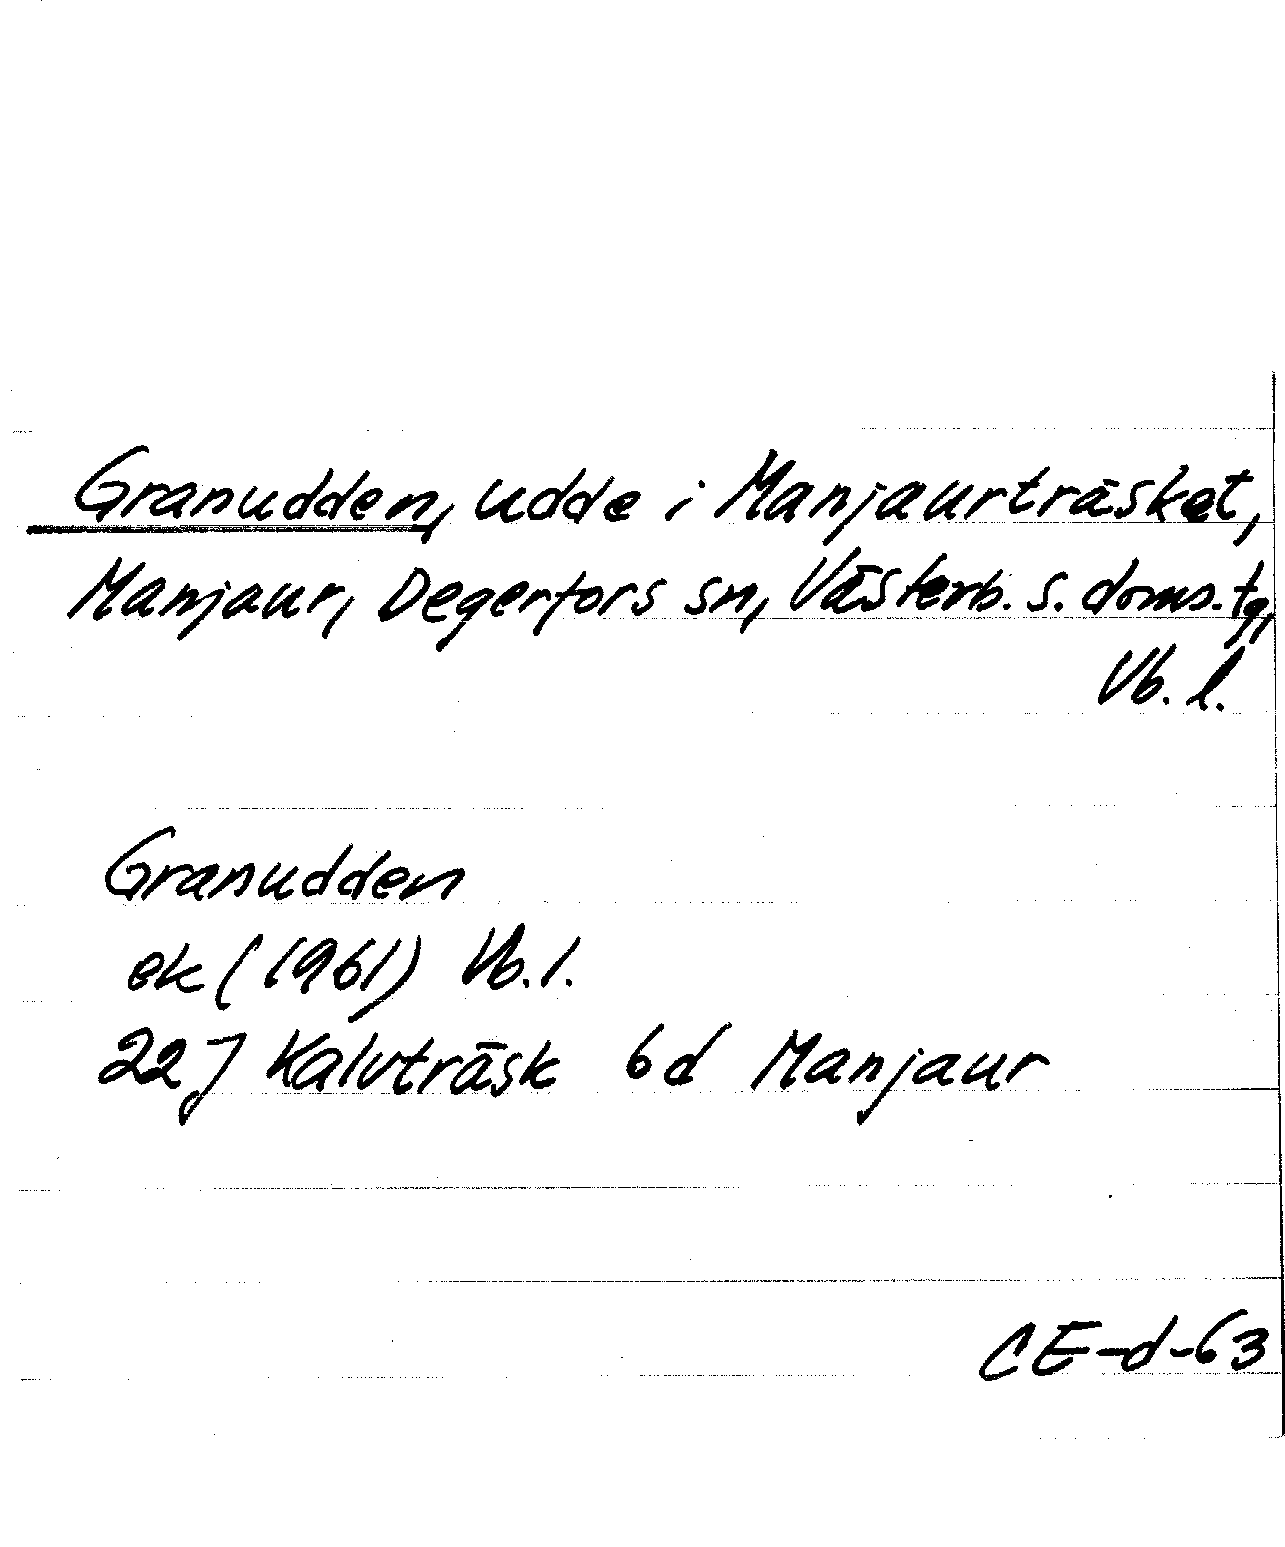 Granudden, udde i Manjaurträsket,
Manjaur, Degerfors sn, Västerb. s. doms. tg,
Vb. l.
Granudden
ek (1961) Vb. l.
22J Kalvträsk 6d Manjaur
CE-d-63